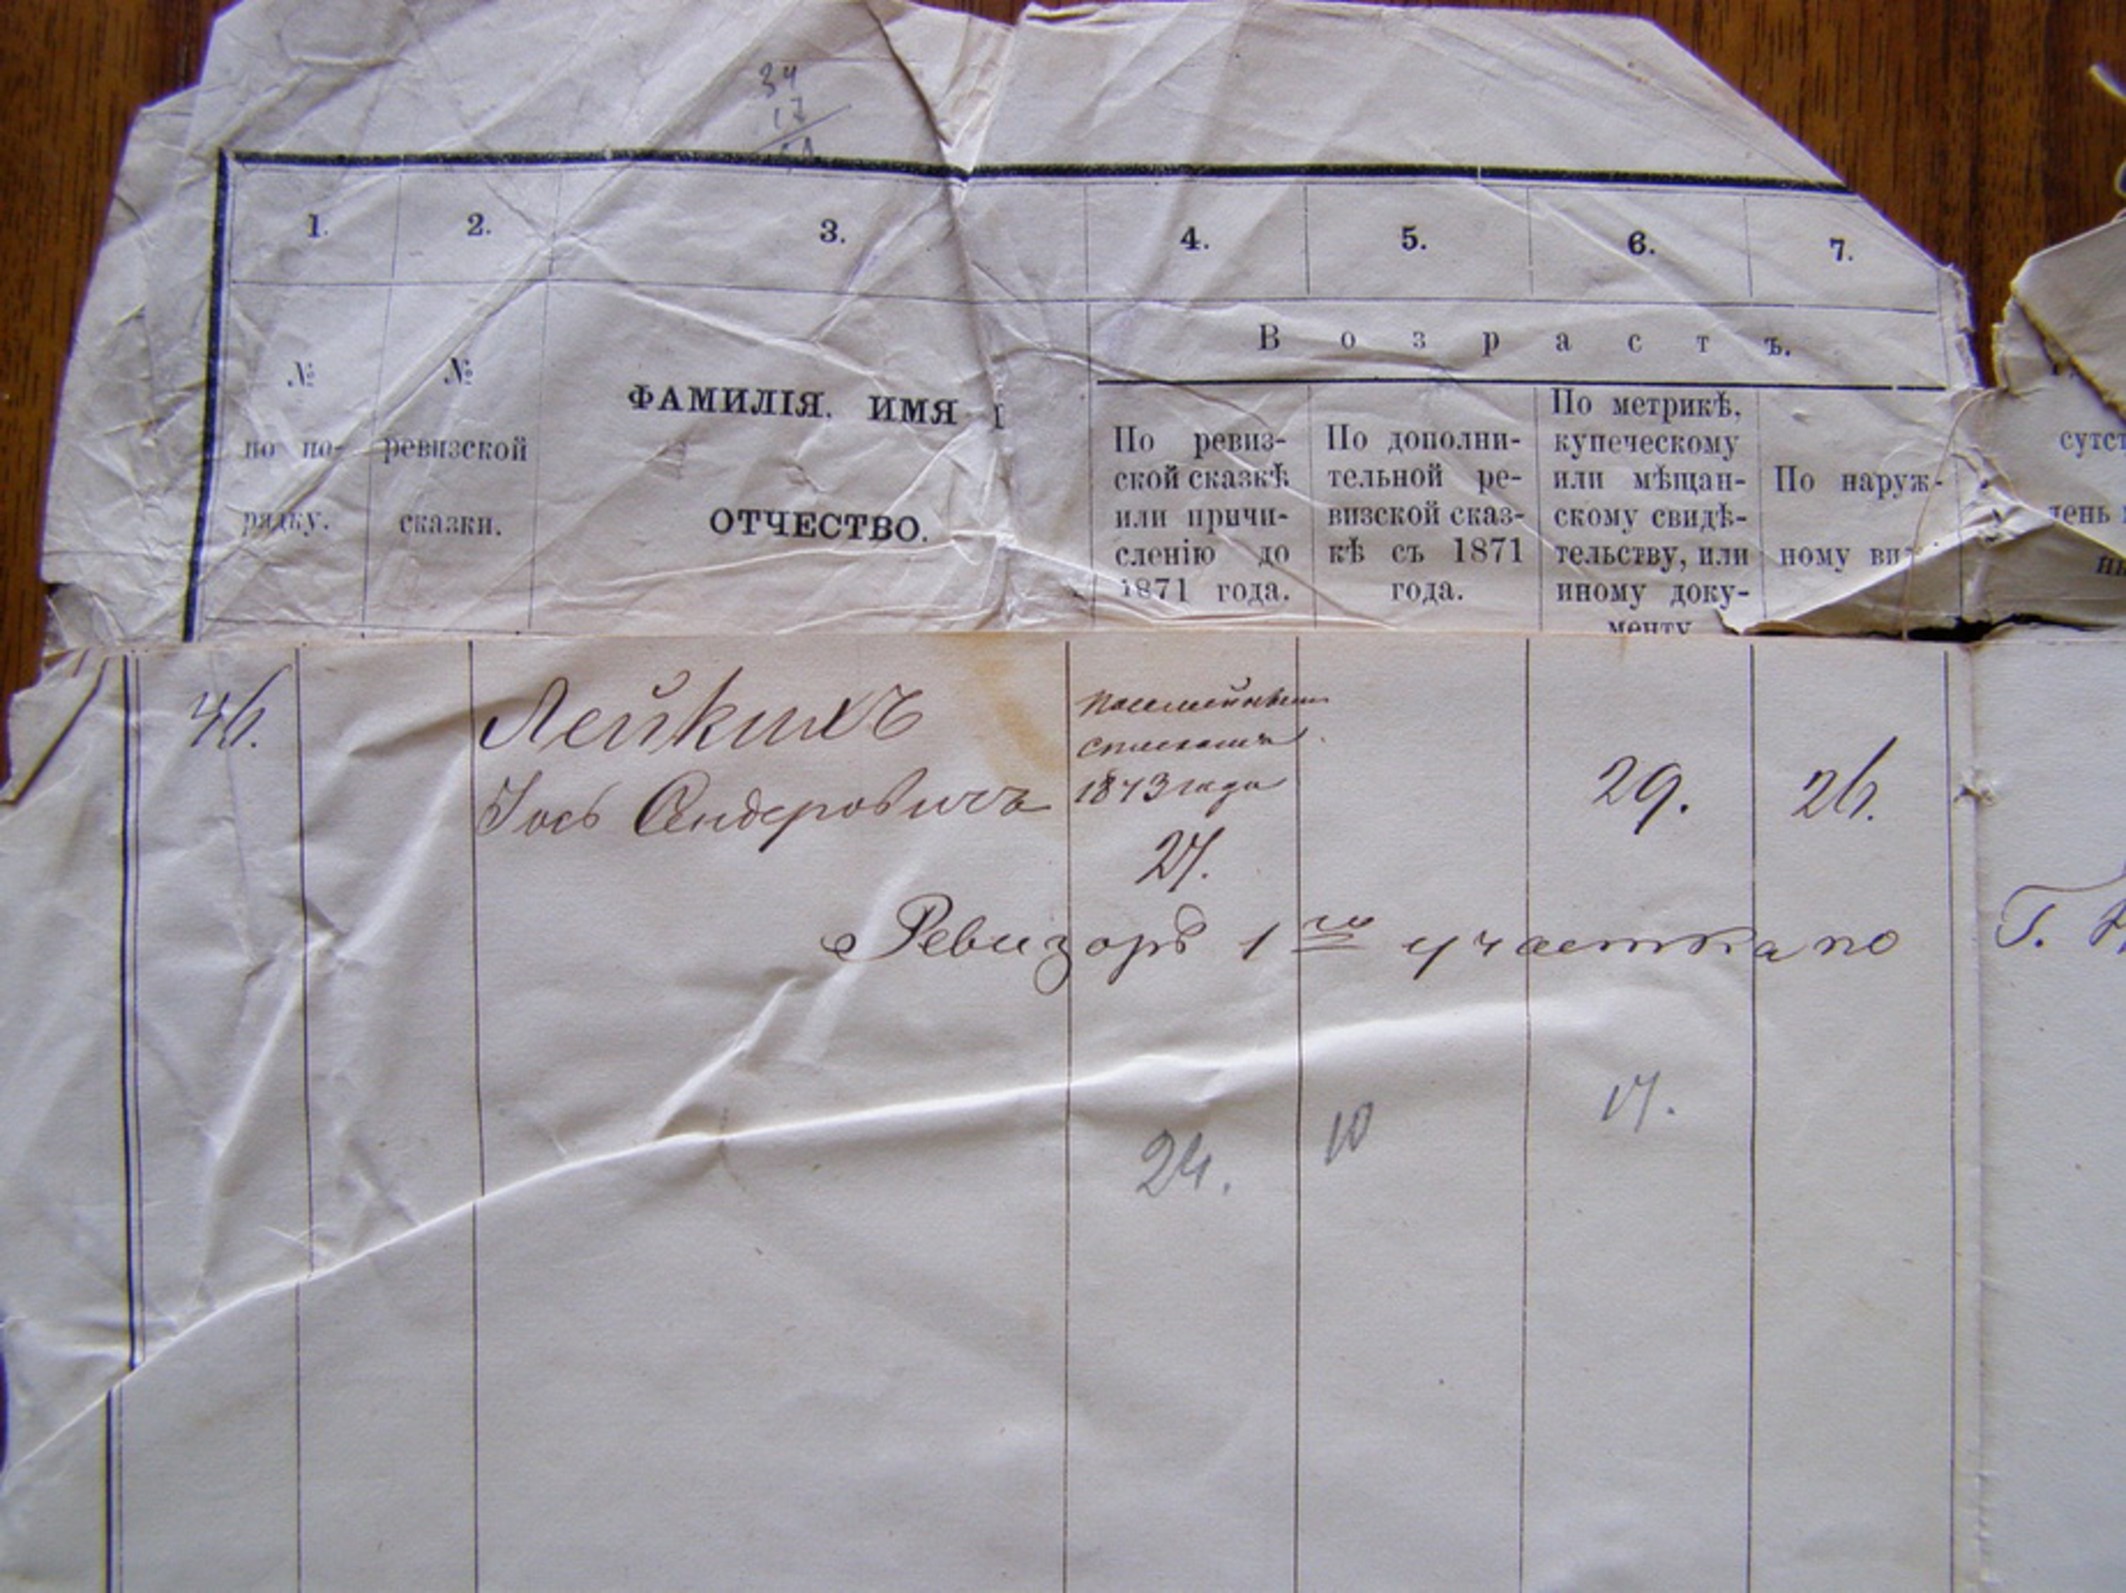 34
17
1. 2. 3. 4. 5. 6. 7.
Возрастъ.
№
по по-
рядку.
№
ревизской
сказки.
ФАМИЛІЯ. ИМЯ
ОТЧЕСТВО.
По ревиз-
ской сказкѣ
или причи-
сленію до
1871 года.
По дополни-
тельной ре-
визской сказ-
кѣ съ 1871
года.
По метрикѣ,
купеческому
или мѣщан-
скому свидѣ-
тельству, или
иному доку-
менту
По наруж-
ному ви
сутст
день
46.
Лейкинъ
Іось Сендеровичъ
Посемейнымъ
спискамъ
1873 года
27.
29.
26.
Ревизоръ 1го участка по
Г.
24.
10
17.